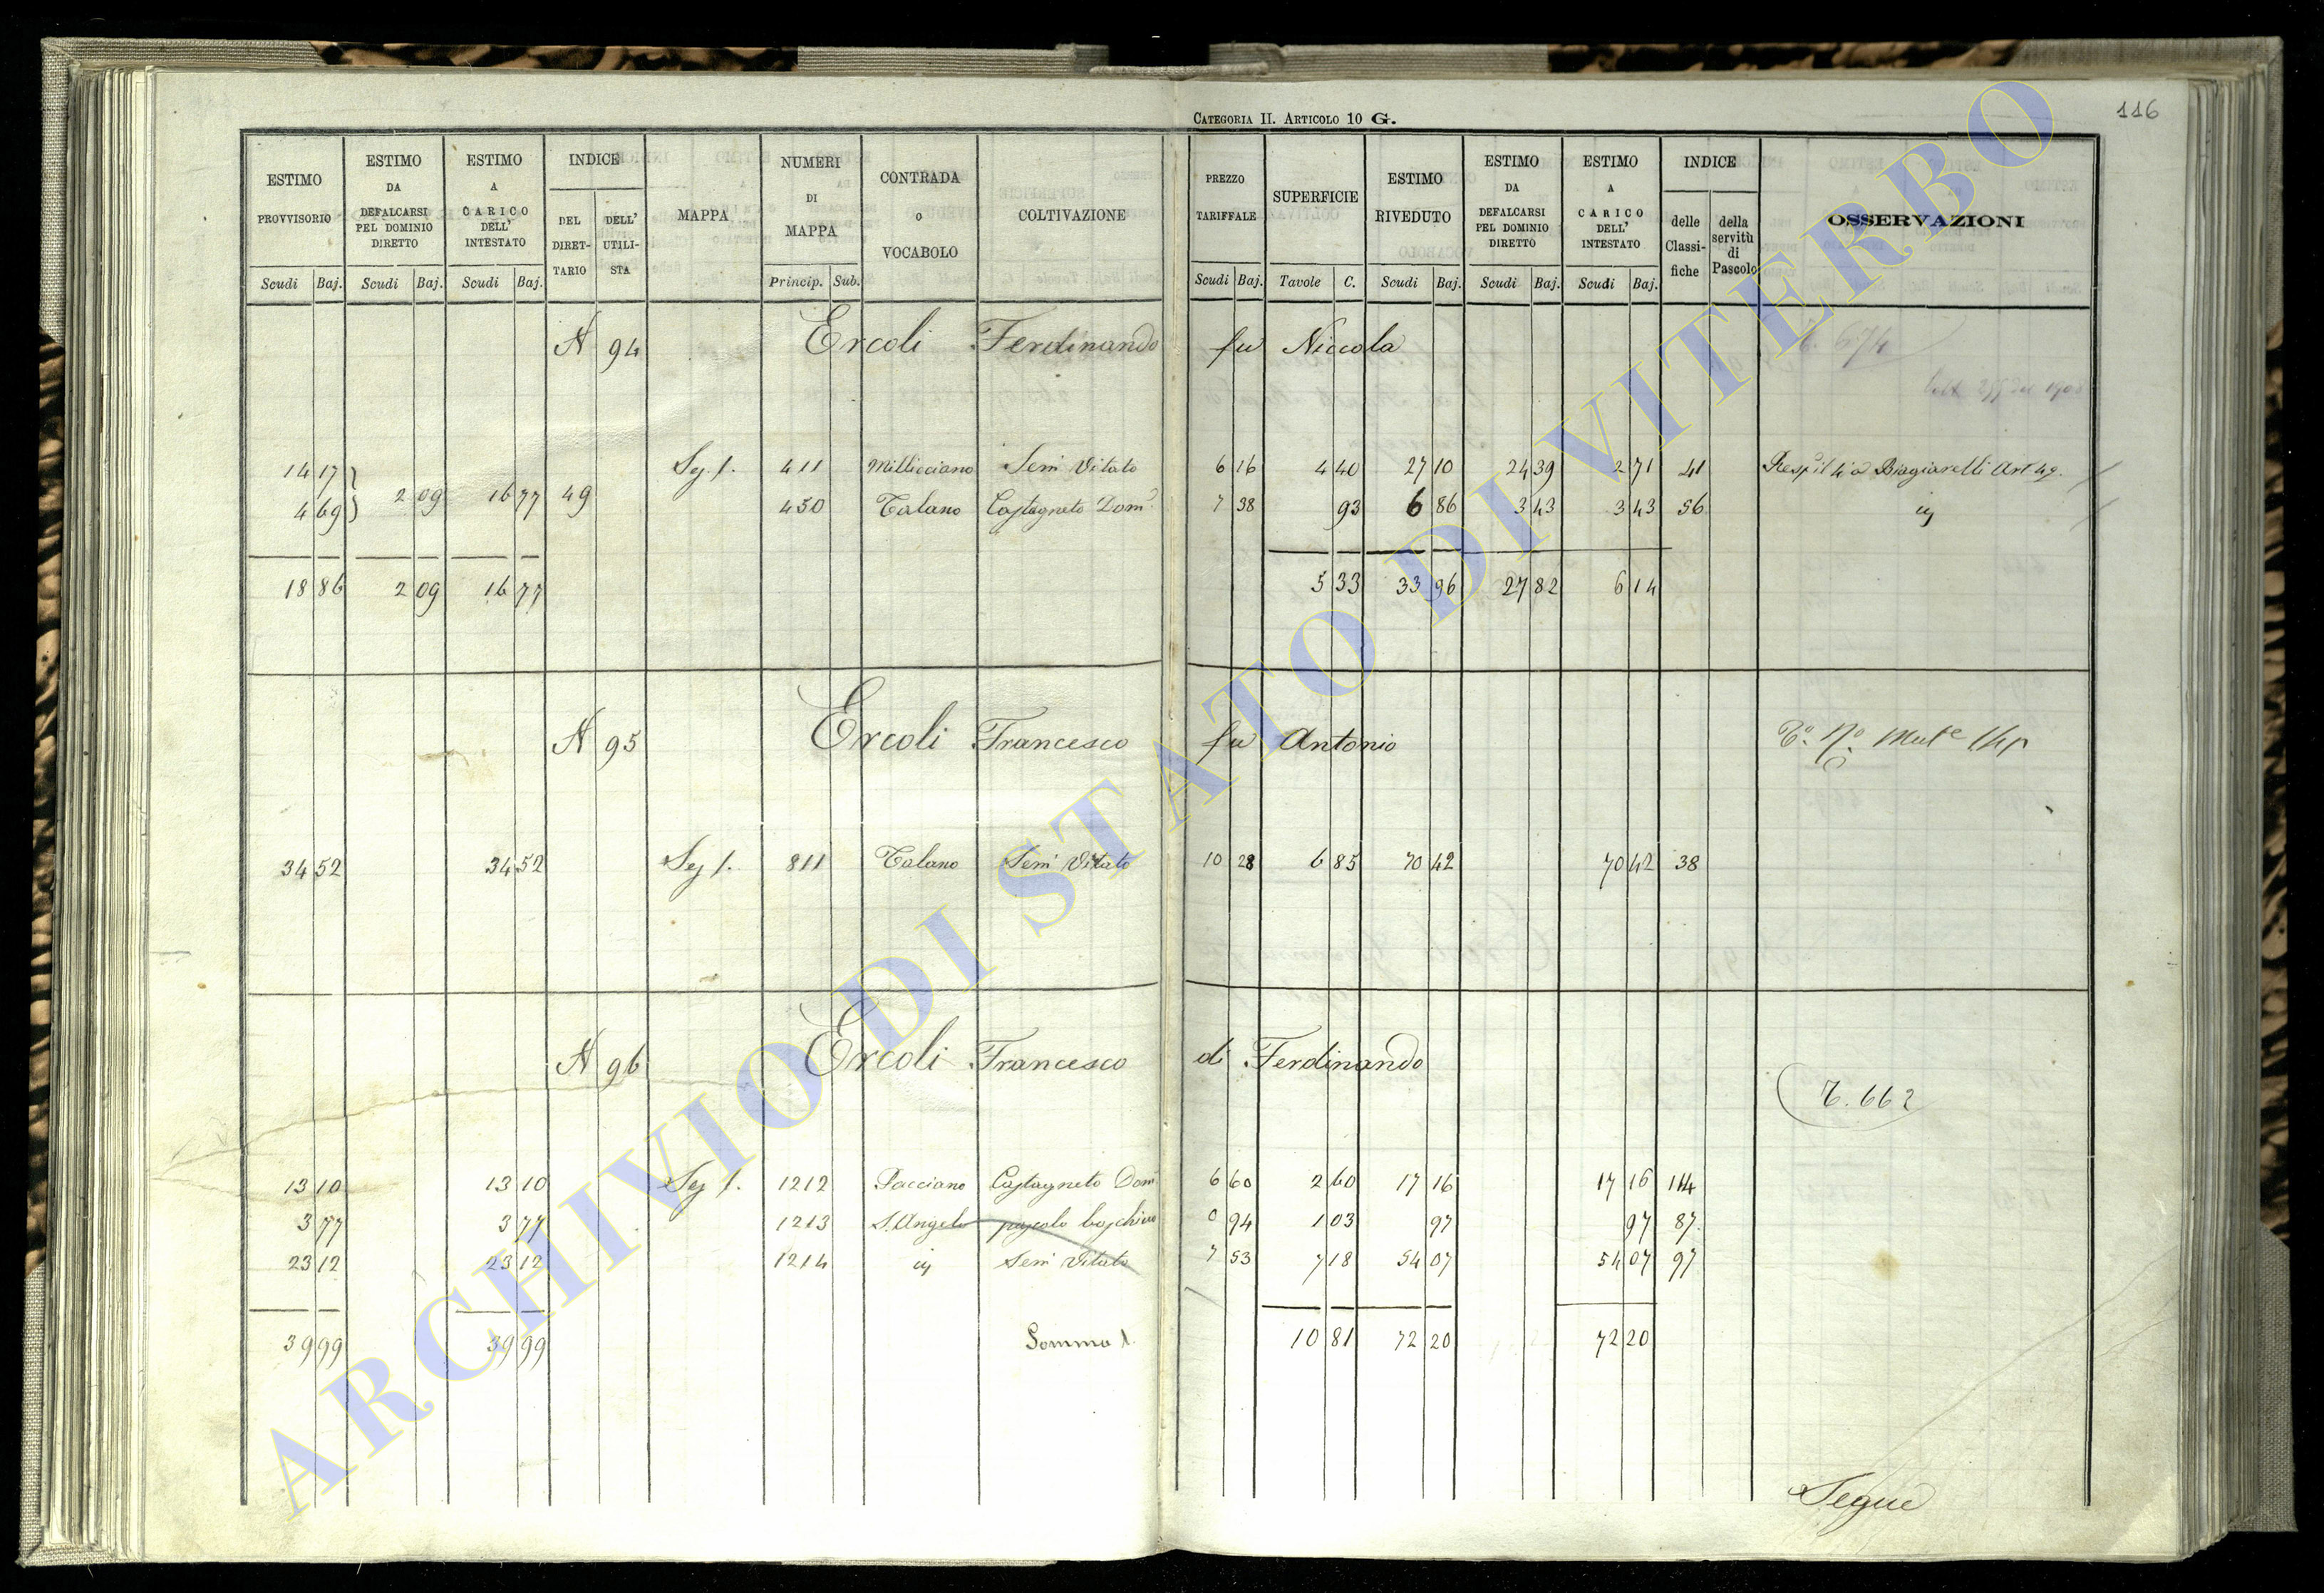 116
CATEGORIA II. ARTICOLO 10 G.
ESTIMO PROVVISORIO Scudi Baj.
ESTIMO DA DEFALCARSI PEL DOMINIO DIRETTO Scudi Baj.
ESTIMO A CARICO DELL' INTESTATO Scudi Baj.
INDICE DEL DIRET-TARIO DELL' UTILI-STA
MAPPA
NUMERI DI MAPPA Princip. Sub.
CONTRADA O VOCABOLO
COLTIVAZIONE
PREZZO TARIFFALE Scudi Baj.
SUPERFICIE Tavole C.
ESTIMO RIVEDUTO Scudi Baj.
ESTIMO DA DEFALCARSI PEL DOMINIO DIRETTO Scudi Baj.
ESTIMO A CARICO DELL' INTESTATO Scudi Baj.
INDICE delle Classi-fiche della servitù di Pascolo
OSSERVAZIONI
N 94 Ercoli Ferdinando fu Niccola 674
14 17 Sez. 1. 411 Millicciano Sem Vitato 6 16 4 40 27 10 24 39 2 71 41 Biagiarelli Art 49.
4 69 2 09 16 77 49 450 Talano Castagneto Dom 7 38 93 6 86 3 43 3 43 56
18 86 2 09 16 77 5 33 33 96 27 82 6 14
N 95 Ercoli Francesco fu Antonio
34 52 34 52 Sez 1. 811 Talano Sem Vitato 10 28 6 85 70 42 70 42 38
N 96 Ercoli Francesco di Ferdinando
T. 662
13 10 13 10 Sez 1. 1212 Pacciano Castagneto Dom 6 60 2 60 17 16 17 16 114
3 77 3 77 1213 S. Angelo pascolo boschivo 0 94 1 03 97 97 87.
23 12 23 12 1214 Sem Vitato 7 53 7 18 54 07 54 07 97
39 99 39 99 Somma 10 81 72 20 72 20
Segue
ARCHIVIO DI STATO DI VITERBO